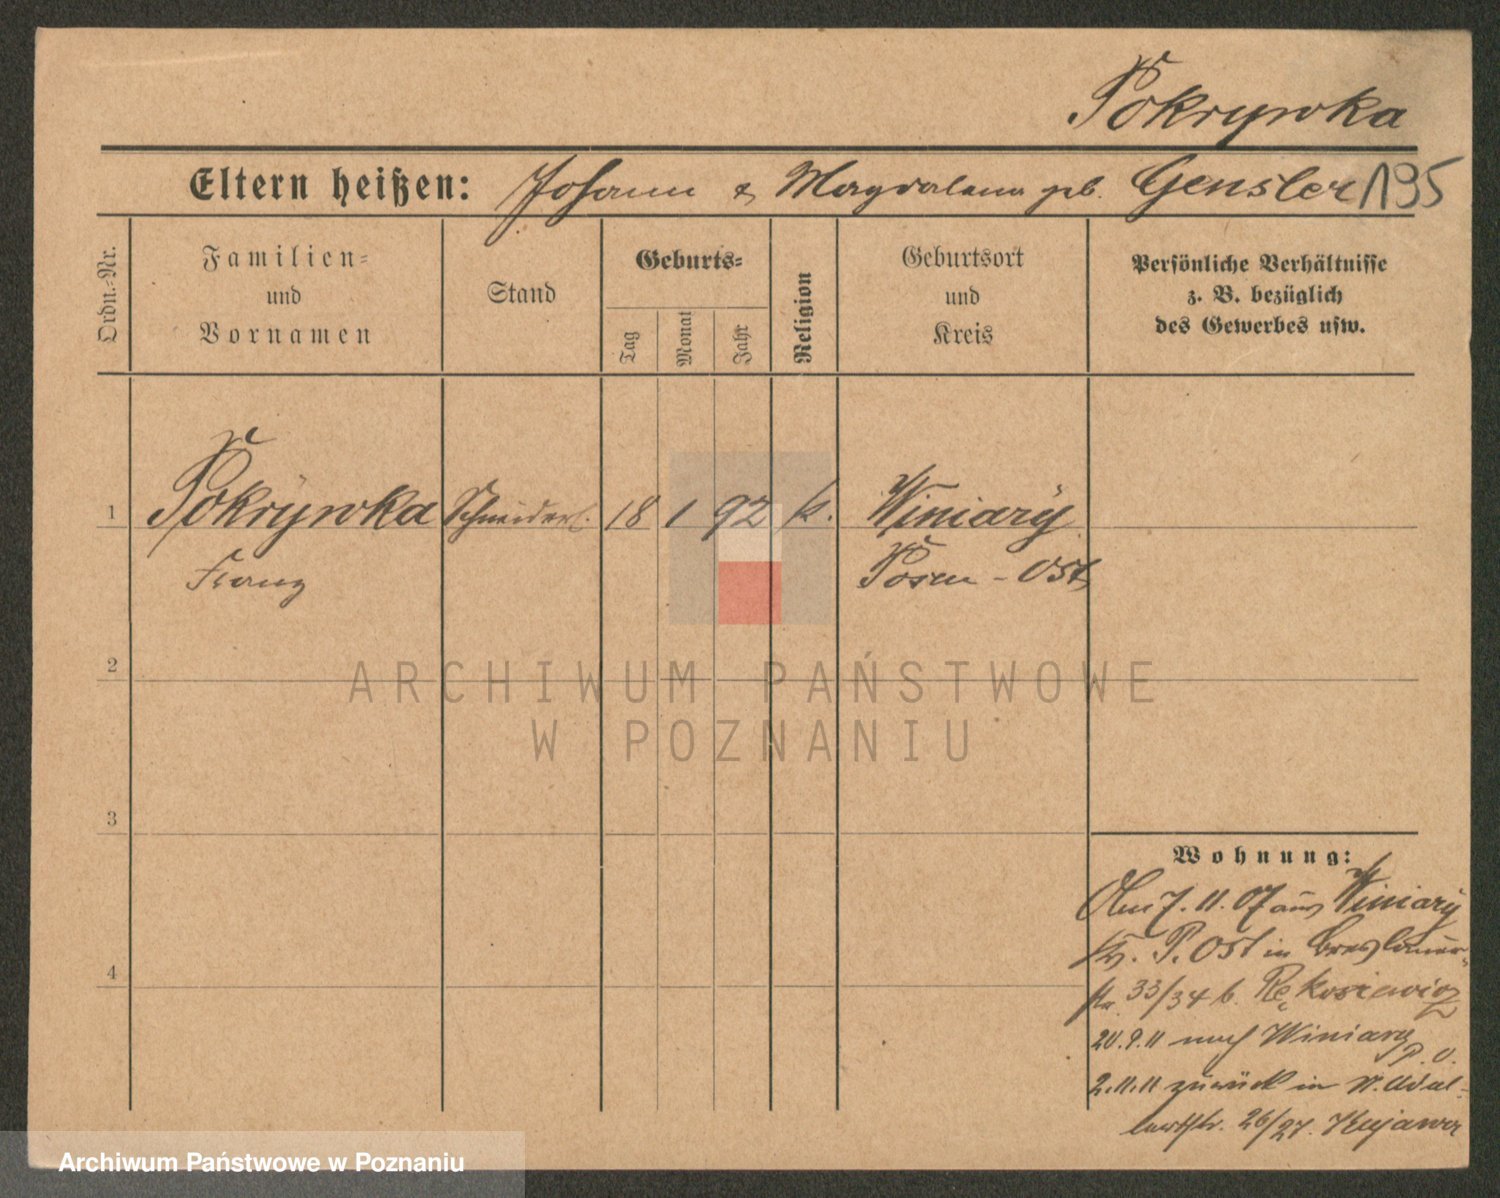 Pokrywka
Eltern heißen: Johann & Magdalena geb. Gensler 195
Ordn.-Nr.
Familien-
und
Vornamen
Stand
Geburts-
Tag
Monat
Jahr
Religion
Geburtsort
und
Kreis
Persönliche Verhältnisse
z. B. bezüglich
des Gewerbes usw.
1 Pokrywka Schneiderl. 18 1 92 k. Winiary
Franz Posen-Ost
2
ARCHIWUM PAŃSTWOWE
W POZNANIU
3
Wohnung:
7.11.07 aus Winiary
Kr. P. Ost in Breslauer-
str. 33/34 b. Rękosiewicz
20.9.11 nach Winiary
P. O.
4
2.11.11 zurück in N. Adal-
bertstr. 26/27. Kujawa
Archiwum Państwowe w Poznaniu